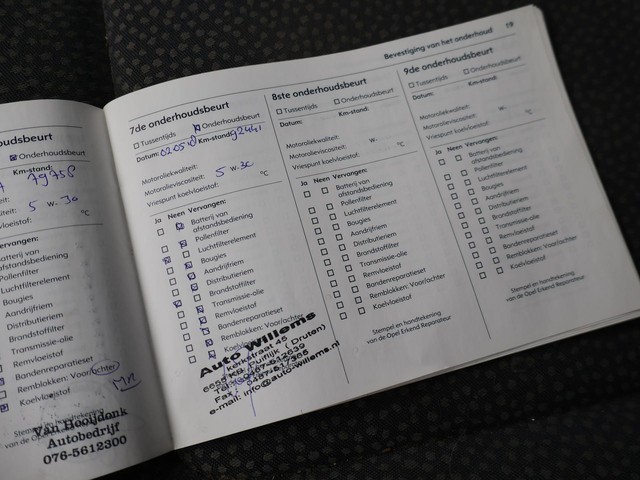 Bevestiging van het onderhoud 19
oudsbeurt
Onderhoudsbeurt
Km-stand:
79758
teit:
siteit: 5 W- 30
oelvloeistof: °C
ervangen:
Batterij van
afstandsbediening
Pollenfilter
Luchtfilterelement
Bougies
Aandrijfriem
Distributieriem
Brandstoffilter
Transmissie-olie
Remvloeistof
Bandenreparatieset
Remblokken: Voor/achter
Koelvloeistof
Stempel en handtekening
van de Opel Erkend
Van Hooijdonk
Autobedrijf
076-5612300
7de onderhoudsbeurt
Tussentijds Onderhoudsbeurt
Datum: Km-stand: 92441
Motoroliekwaliteit:
Motorolieviscositeit: 5 W- 30
Vriespunt koelvloeistof: °C
Ja Neen Vervangen:
Batterij van
afstandsbediening
Pollenfilter
Luchtfilterelement
Bougies
Aandrijfriem
Distributieriem
Brandstoffilter
Transmissie-olie
Remvloeistof
Bandenreparatieset
Remblokken: Voor/achter
Auto Willems
kerkstraat 45
6655 KB Puiflijk (Druten)
Tel: 0487-512639
Fax: 0487-517365
e-mail: info@auto-willems.nl
8ste onderhoudsbeurt
Tussentijds Onderhoudsbeurt
Datum: Km-stand:
Motoroliekwaliteit:
Motorolieviscositeit: W-
Vriespunt koelvloeistof: °C
Ja Neen Vervangen:
Batterij van
afstandsbediening
Pollenfilter
Luchtfilterelement
Bougies
Aandrijfriem
Distributieriem
Brandstoffilter
Transmissie-olie
Remvloeistof
Bandenreparatieset
Remblokken: Voor/achter
Koelvloeistof
Stempel en handtekening
van de Opel Erkend Reparateur
9de onderhoudsbeurt
Tussentijds Onderhoudsbeurt
Datum: Km-stand:
Motoroliekwaliteit:
Motorolieviscositeit: W-
Vriespunt koelvloeistof: °C
Ja Neen Vervangen:
Batterij van
afstandsbediening
Pollenfilter
Luchtfilterelement
Bougies
Aandrijfriem
Distributieriem
Brandstoffilter
Transmissie-olie
Remvloeistof
Bandenreparatieset
Remblokken: Voor/achter
Koelvloeistof
Stempel en handtekening
van de Opel Erkend Reparateur